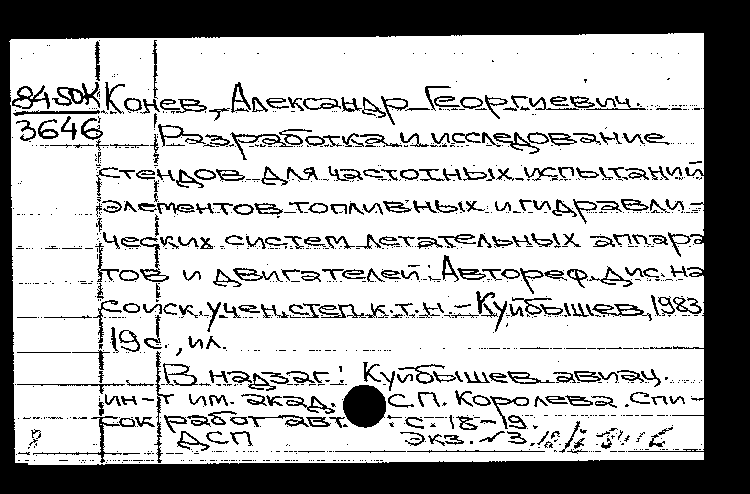 84-50К Конев, Александр Георгиевич.
3646 Разработка и исследование
стендов для частотных испытаний
элементов топливных и гидравли-
ческих систем летательных аппара
тов и двигателей: Автореф. дис. на
соиск. учен. степ. к.т.н. - Куйбышев, 1983
19 с., ил.
В надзаг.: Куйбышев. авиац.
ин-т им. акад. С.П. Королева. Спи-
сок работ авт.: с. 18-19.
ДСП экз. №3.